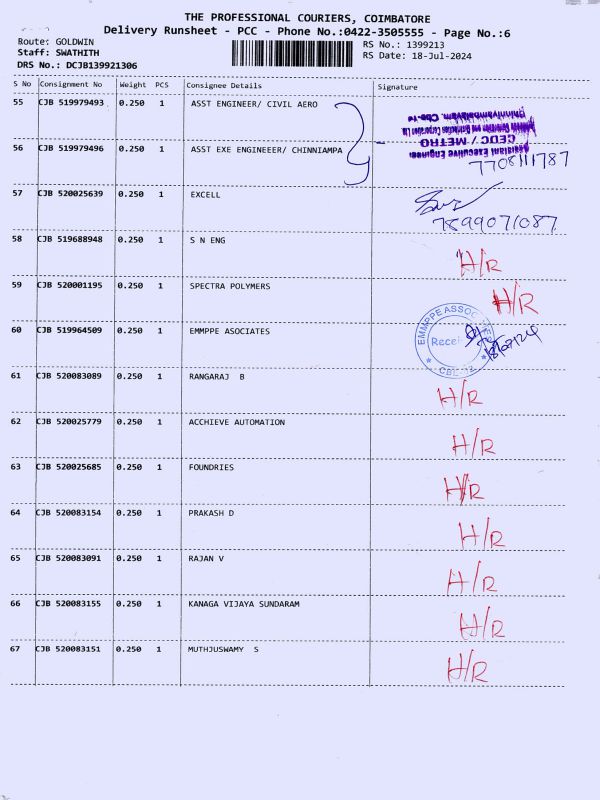 THE PROFESSIONAL COURIERS, COIMBATORE
Delivery Runsheet - PCC - Phone No.:0422-3505555 - Page No.:6
Route: GOLDWIN
Staff: SWATHITH
DRS No.: DCJB139921306
RS No.: 1399213
RS Date: 18-Jul-2024
S No Consignment No Weight PCS Consignee Details Signature
55 CJB 519979493 0.250 1 ASST ENGINEER/ CIVIL AERO
CEDC / METRO
56 CJB 519979496 0.250 1 ASST EXE ENGINEEER/ CHINNIAMPA
7708111787
57 CJB 520025639 0.250 1 EXCELL
7899071087
58 CJB 519688948 0.250 1 S N ENG H/R
59 CJB 520001195 0.250 1 SPECTRA POLYMERS H/R
60 CJB 519964509 0.250 1 EMMPPE ASOCIATES
EMMPPE ASSOC
Recei
18/07/24
61 CJB 520083089 0.250 1 RANGARAJ B H/R
62 CJB 520025779 0.250 1 ACCHIEVE AUTOMATION H/R
63 CJB 520025685 0.250 1 FOUNDRIES H/R
64 CJB 520083154 0.250 1 PRAKASH D H/R
65 CJB 520083091 0.250 1 RAJAN V H/R
66 CJB 520083155 0.250 1 KANAGA VIJAYA SUNDARAM H/R
67 CJB 520083151 0.250 1 MUTHJUSWAMY S H/R